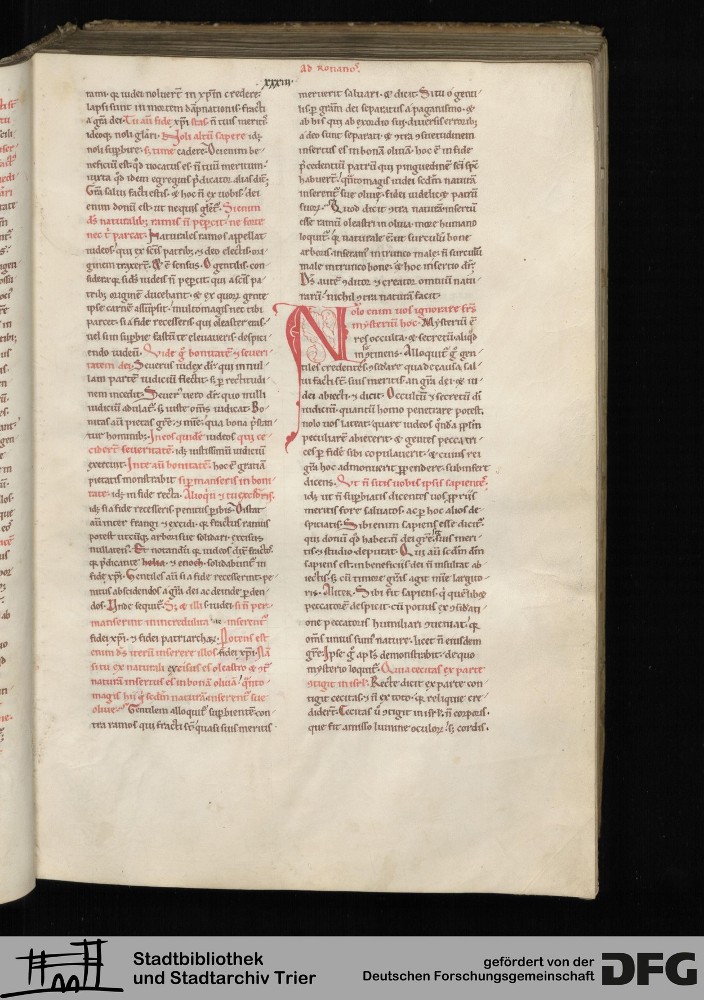 Ad Romanos.
xxxiii
rami. qr iudei noluert in xpm credere.
lapsi sunt in mortem dapnationis. fracti
a gra dei. Tu au fide xpi stas. n tuis meritis
ideoq; noli glari. Noli altu sapere. id;
noli supbire. s; time cadere. Dei enim be-
neficiu est. qd uocatus es. n tuu meritum.
iuxta qd idem egregius pdicator alias dic;
Gra salui facti estis. & hoc n ex uobis. dei
enim donu est. ut nequis glet. Si enim
ds naturalib; ramis n pepcit. ne forte
nec t parcat. Naturales ramos appellat
iudeos. qui ex scis patrib; & deo electis ori-
ginem traxert. & e sensus. O gentilis. con-
sidera. qr si ds iudeis n pepcit. qui a scis pa-
trib; origine ducebant. & ex quor gente
ipse carne assupsit. multomagis nec tibi
parcet. si a fide recesseris. qui oleaster exis-
uel si in supbie fastu te eleuaueris. despici-
endo iudeu. Vide g bonitate & seueri-
tatem dei. Seuerus iudex dr. qui in nul-
lam parte iudiciu flectit. s; p rectitudi-
nem incedit. Seuer uero dr. quo nulli
iudiciu adulat. s; iuste oms iudicat. Bo-
nitas au pietas gre. & mie. qua bona pstan-
tur hominib; In eos quide iudeos qui ce-
cidert seueritate. id; iustissimu iudiciu
exercuit. In te au bonitate. hoc e gratia
pietatis monstrabit. si pmanseris in boni-
tate. id; in fide recta. Alioqn & tu excideris.
id; si a fide recesseris. penitus pibis. Distat
au inter frangi & excidi. qr fractus ramus
potest utcuq; arbori sue solidari. excisus
nullatenus. Et notandu qr iudeos dic fractos.
qr pdicante helia. & enoch. solidabunt in
fide xpi. Gentiles au si a fide recesserint. pe-
nitus abscidendos a gra dei ac deinde pden-
dos. Unde sequit. S; & illi. i. iudei. si n per-
manserint in incredulitate. inserent
fidei xpi. & fidei patriarchar. Potens est
enim ds iteru inserere illos fidei xpi. Na
si tu ex naturali excisus es oleastro & 9t
natura insertus es in bona oliua. qnto-
magis hii q sedm natura inserent sue
oliue. Gentilem alloquit supbiente con-
tra ramos qui fracti st. quasi suis meritis
meruerit saluari. & dicit. Si tu o genti-
lis p gram dei separatus a paganismo. &
ab his qui ab exordio sui. diuersis errorib;
a deo sunt separati. & 9tra 9suetudinem
insertus es in bona oliua. hoc e in fide
pcedentiu patru qui pinguedine sci sps
habuert. qntomagis iudei scdm natura
inserent sue oliue. fidei uidelic; & patru
suor. Quod dicit 9tra natura insertu
esse ramu oleastri in oliua. more humano
loquit. qr naturale e. ut surculu bone
arboris inseram in trunco male. n surculu
male in trunco bone. & hoc insertio dr.
Ds aute 9ditor & creator omniu natu-
raru. nichil 9tra natura facit.
Nolo enim uos ignorare frs
mysteriu hoc. Mysteriu e
res occulta. & secretu aliqd
9tinens. Alloquit g gen-
tiles credentes. 9siderare qua de causa sal-
ui facti st. sine meritis an gra dei. & iu-
dei abiecti. & dicit. Occultu & secretu di
iudiciu. quantu homo penetrare potest.
nolo uos lateat. quare iudeos qnda pplm
peculiare abiecerit. & gentes peccatri-
ces p fide sibi copulauerit. & cuius rei
gra hoc admonuerit ppendere. subinfert
dicens. Ut n sitis uobis ipsis sapientes.
id; ut n supbiatis dicentes uos pprijs
meritis fore saluatos. ac p hoc alios de-
spiciatis. Sibi enim sapiens esse dicit.
qui donu qd habet. n dei gre. s; suis meri-
tis & studio deputat. Qui au scdm dm
sapiens est. in beneficiis dei n insultat ab-
iectis. s; cu timore gras agit mie largito-
ris. Aliter. Sibi fit sapiens. q quelib;
peccatore despicit. cu potius ex 9sidati-
one peccatoris humiliari 9ueniat. qr
oms unius sunt nature. licet n eiusdem
gre. Ipse g apls demonstrabit. de quo
mysterio loquit. Quia cecitas ex parte
9tigit in isrl. Recte dicit ex parte con-
tigit cecitas. & n ex toto. qr reliquie cre-
didert. Cecitas u 9tigit in isrl. n corporis.
que fit amisso lumine oculor. s; cordis.
Stadtbibliothek
und Stadtarchiv Trier
gefördert von der
Deutschen Forschungsgemeinschaft
DFG